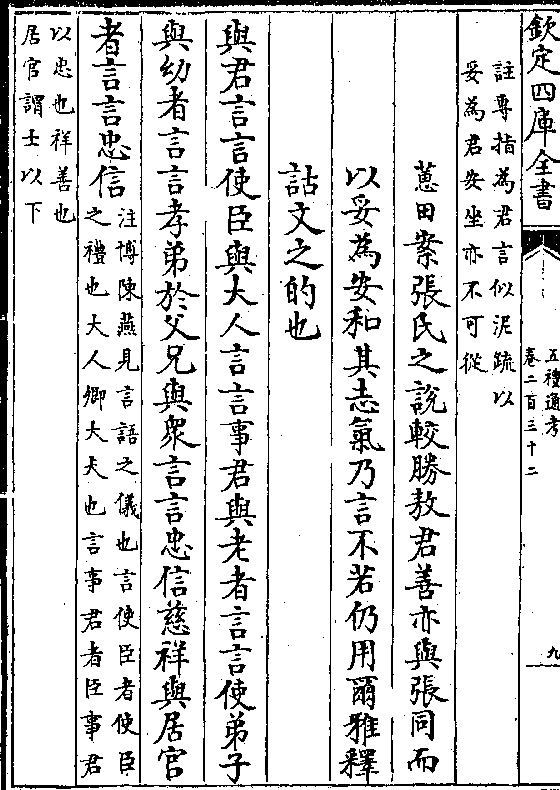 欽定四庫全書
五禮通考
卷二百三十二
九
註專指為君言似泥疏以
妥為君安坐亦不可從
蕙田案張氏之說較勝敖君善亦與張同而
以妥為安和其志氣乃言不若仍用爾雅釋
詁文之的也
與君言言使臣與大人言言事君與老者言言使弟子
與幼者言言孝弟於父兄與衆言言忠信慈祥與居官
者言言忠信
注博陳燕見言語之儀也言使臣者使臣
之禮也大人卿大夫也言事君者臣事君
以忠也祥善也
居官謂士以下